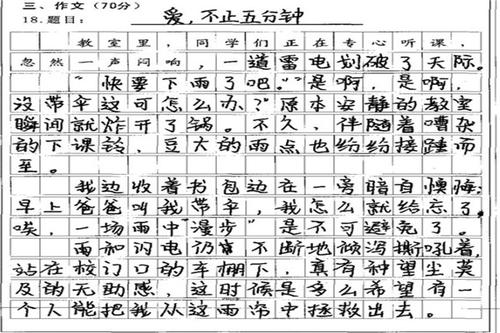 三、作文（70分）
18.题目：爱，不止五分钟
教室里，同学们正在专心听课，
忽然一声闷响，一道雷电划破了天际。
“快要下雨了吧。”“是啊，是啊，
没带伞这可怎么办？”原本安静的教室
瞬间就炸开了锅。不久，伴随着嘈杂
的下课铃，豆大的雨点也纷纷接踵而
至。
我边收着书包边在一旁暗自懊悔：
早上爸爸叫我带伞，我怎么就给忘了，
唉，一场雨中“漫步”是不可避免了。
雨和闪电仍不断地倾泻撕吼着，
站在校门口的车棚下，真有种望尘莫
及的无助感，这时候是多么希望有一
个人能把我从这雨帘中拯救出去。